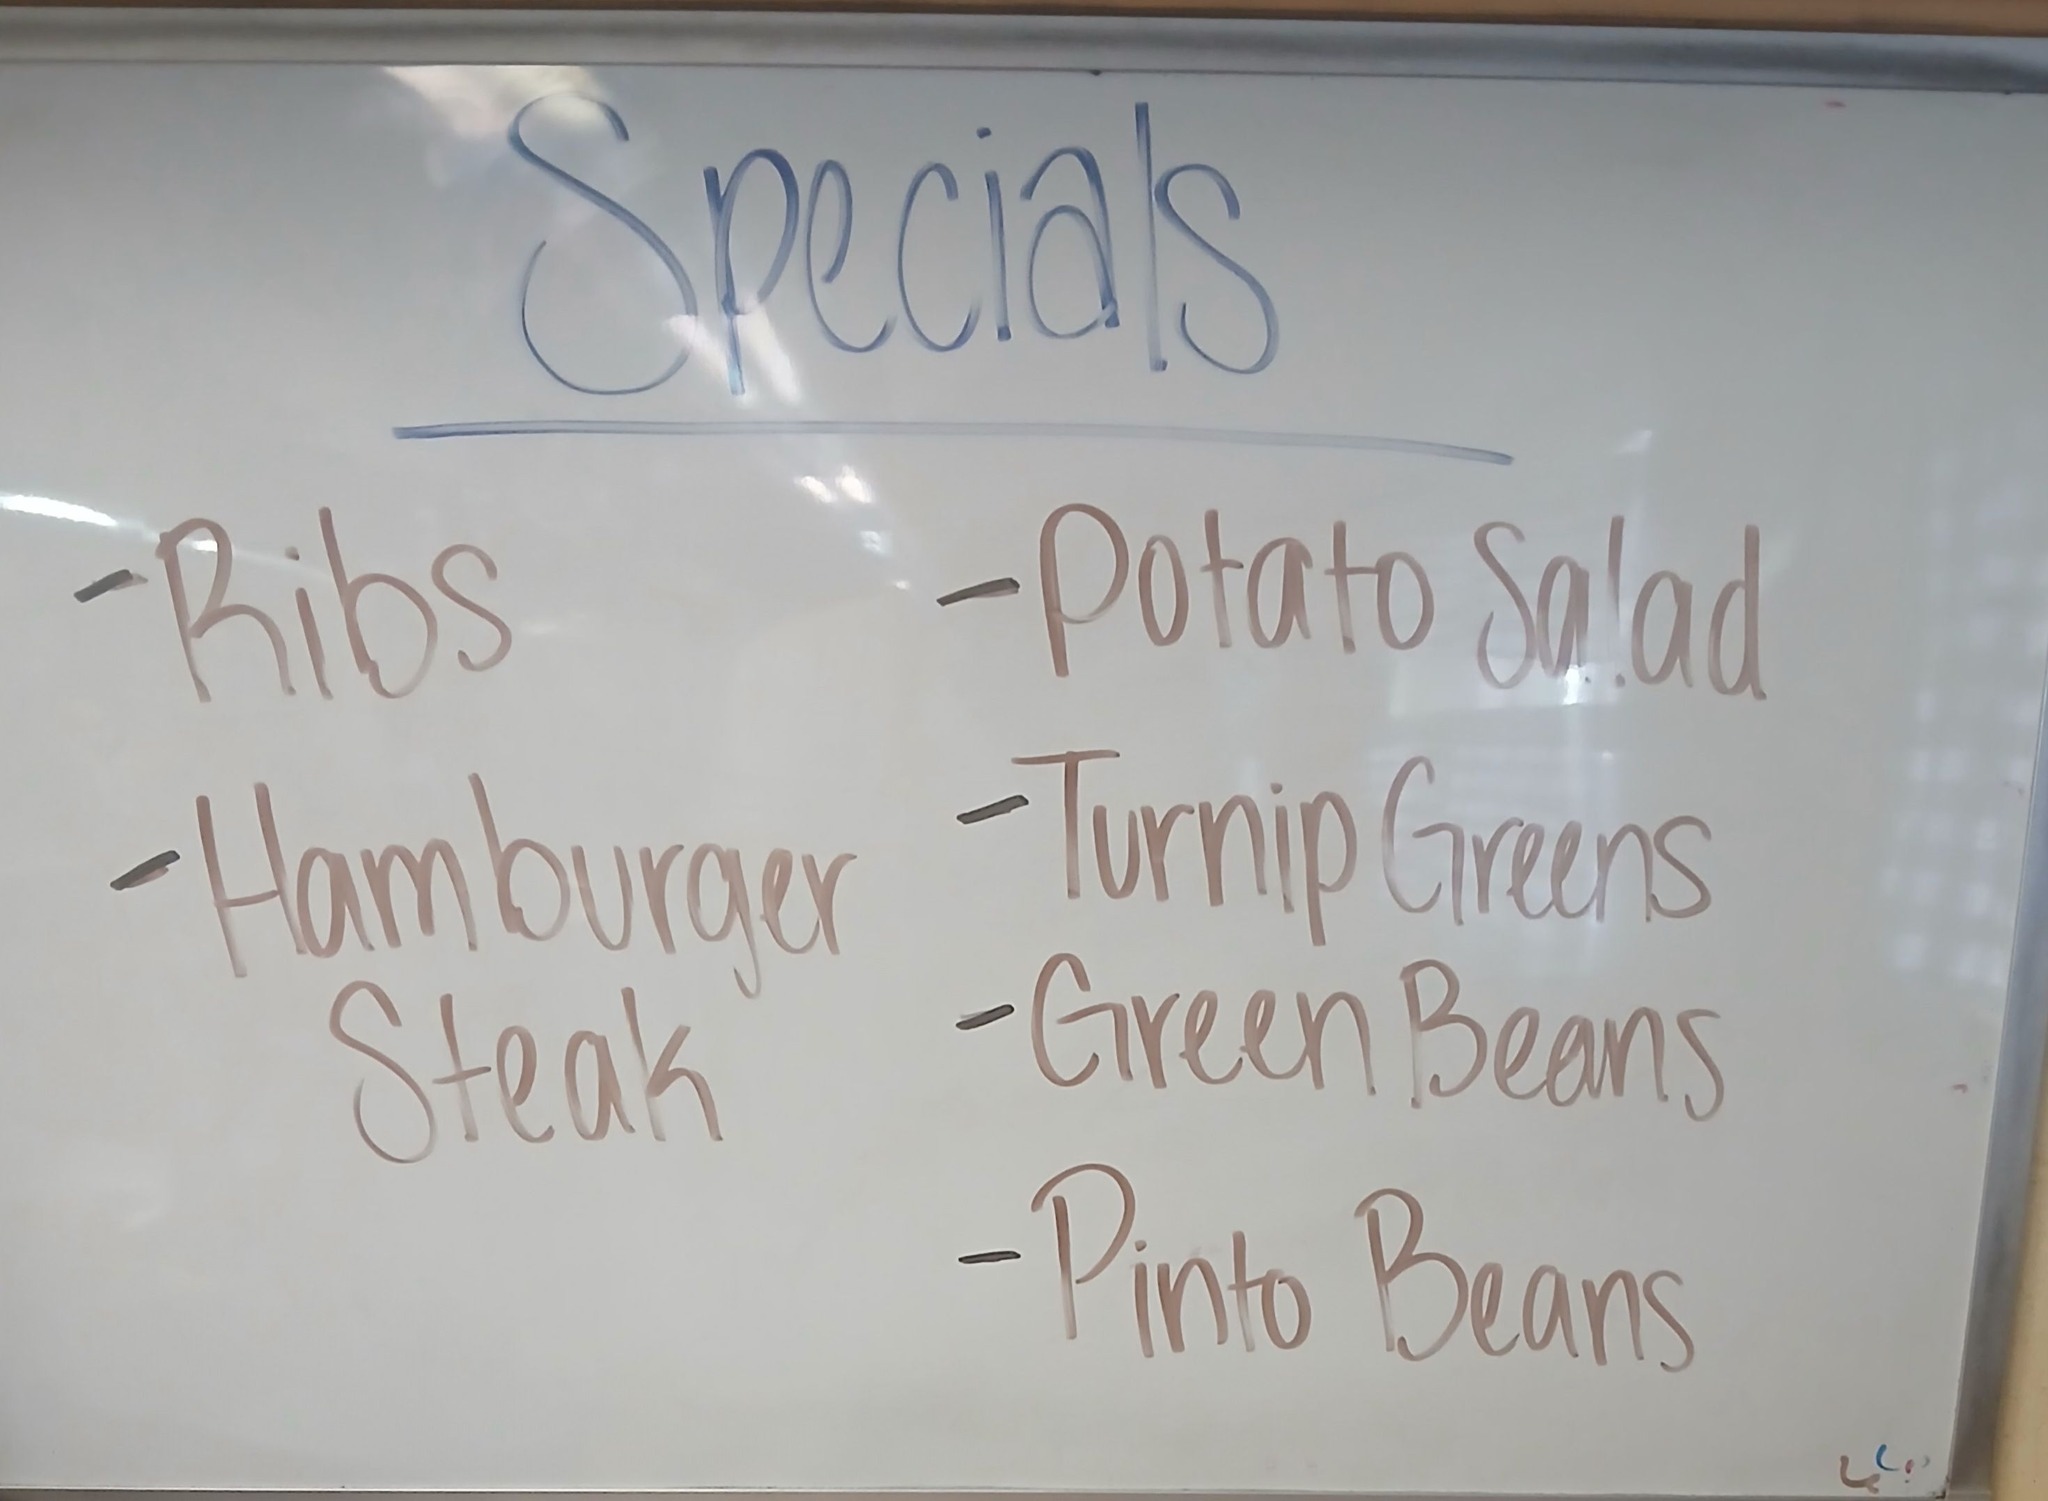 Specials
- Ribs
- Hamburger
Steak
- Potato Salad
- Turnip Greens
- Green Beans
- Pinto Beans